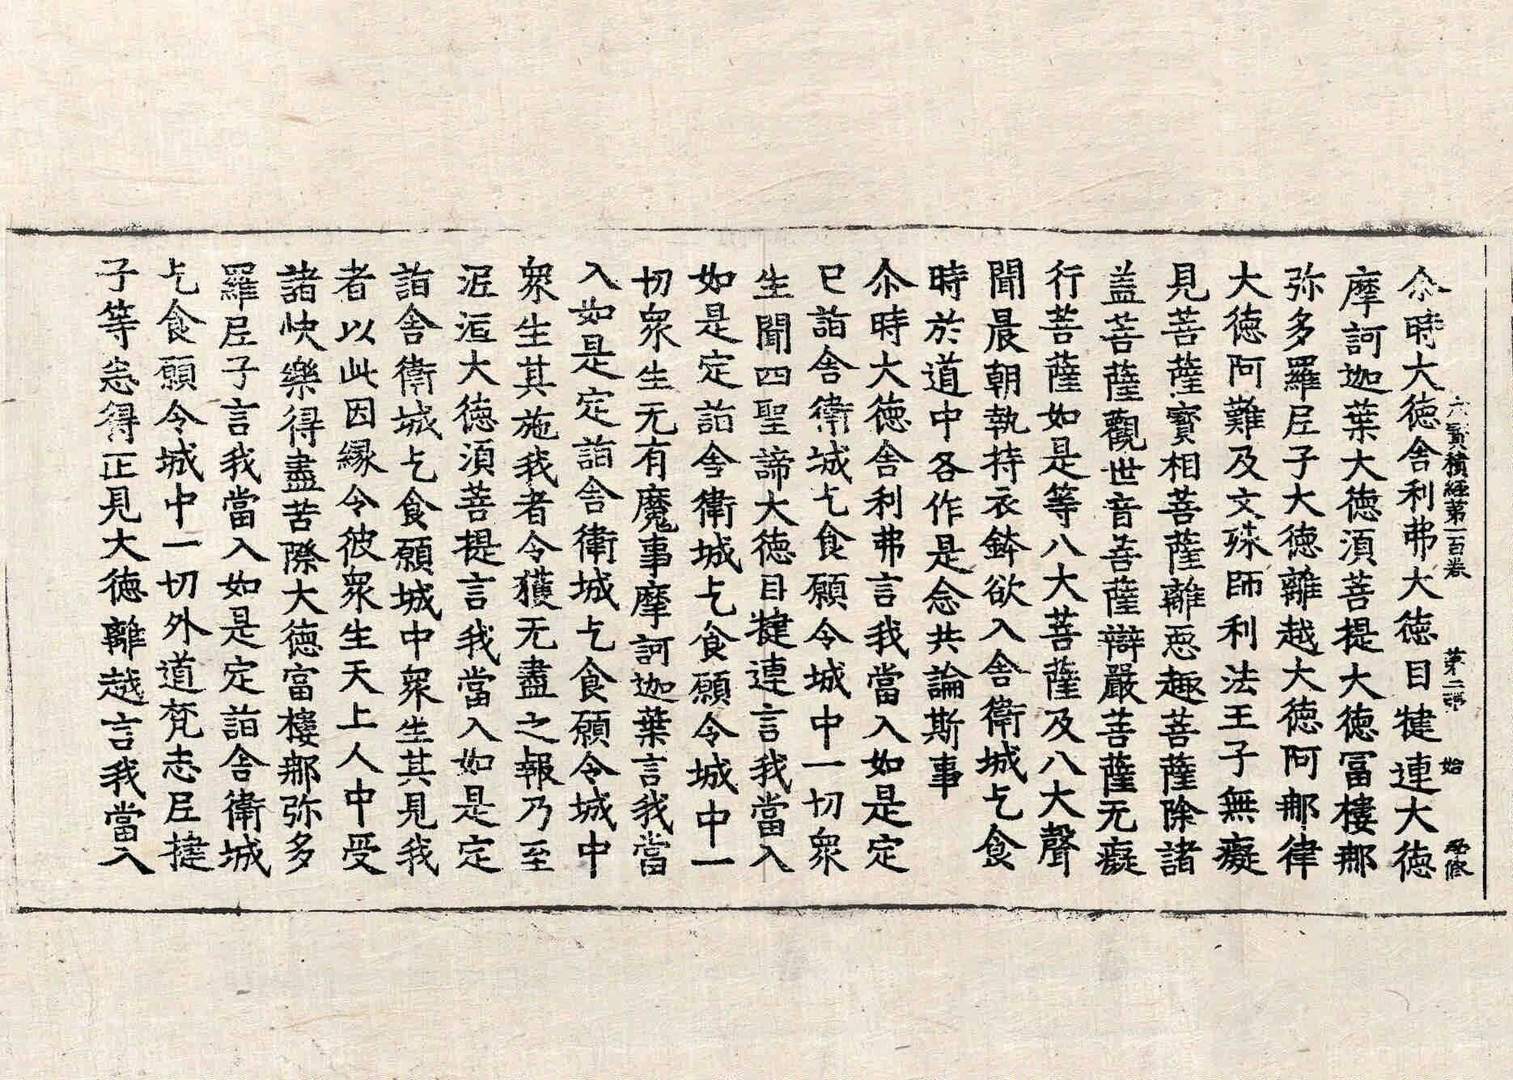 大寳積經第一百卷 苐二張 始
尒時大德舍利弗大德目犍連大德
摩訶迦葉大德須菩提大德冨樓那
弥多羅尼子大德離越大德阿那律
大德阿難及文殊師利法王子無癡
見菩薩寳相菩薩離惡趣菩薩除諸
盖菩薩觀世音菩薩辯嚴菩薩无癡
行菩薩如是等八大菩薩及八大聲
聞晨朝執持衣鉢欲入舍衛城乞食
時於道中各作是念共論斯事
尒時大德舍利弗言我當入如是定
已詣舍衛城乞食願令城中一切衆
生聞四聖諦大德目犍連言我當入
如是定詣舍衛城乞食願令城中一
切衆生无有魔事摩訶迦葉言我當
入如是定詣舍衛城乞食願令城中
衆生其施我者令獲无盡之報乃至
泥洹大德須菩提言我當入如是定
詣舍衛城乞食願城中衆生其見我
者以此因縁令彼衆生天上人中受
諸快樂得盡苦際大德富樓那弥多
羅尼子言我當入如是定詣舍衛城
乞食願令城中一切外道梵志尼揵
子等悉得正見大德離越言我當入